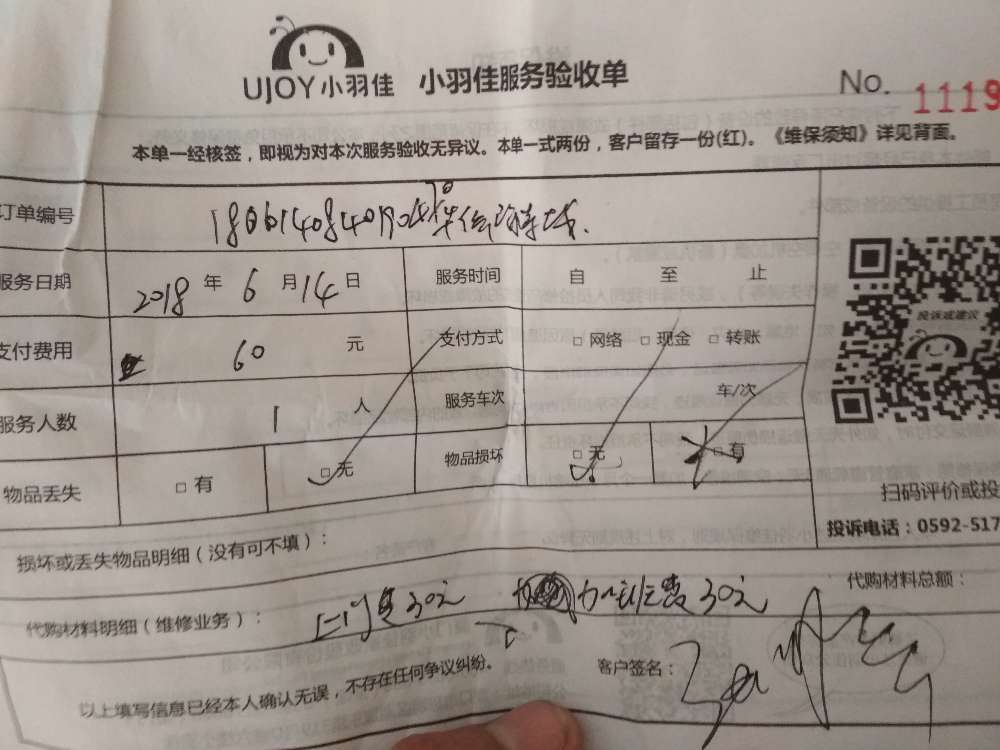 UJOY小羽佳 小羽佳服务验收单 No. 1119
本单一经核签，即视为对本次服务验收无异议。本单一式两份，客户留存一份(红)。《维保须知》详见背面。
订单编号
服务日期 2018 年 6 月 14 日 服务时间 自 至 止
支付费用 60 元 支付方式 □ 网络 □ 现金 □ 转账
服务人数 1 人 服务车次 车/次
物品丢失 □ 有 □ 无 物品损坏 □ 无 □ 有
投诉或建议
扫码评价或投
投诉电话：0592-517
损坏或丢失物品明细（没有可不填）：
代购材料明细（维修业务）： 上门费30元 30元 代购材料总额：
以上填写信息已经本人确认无误，不存在任何争议纠纷。 客户签名：